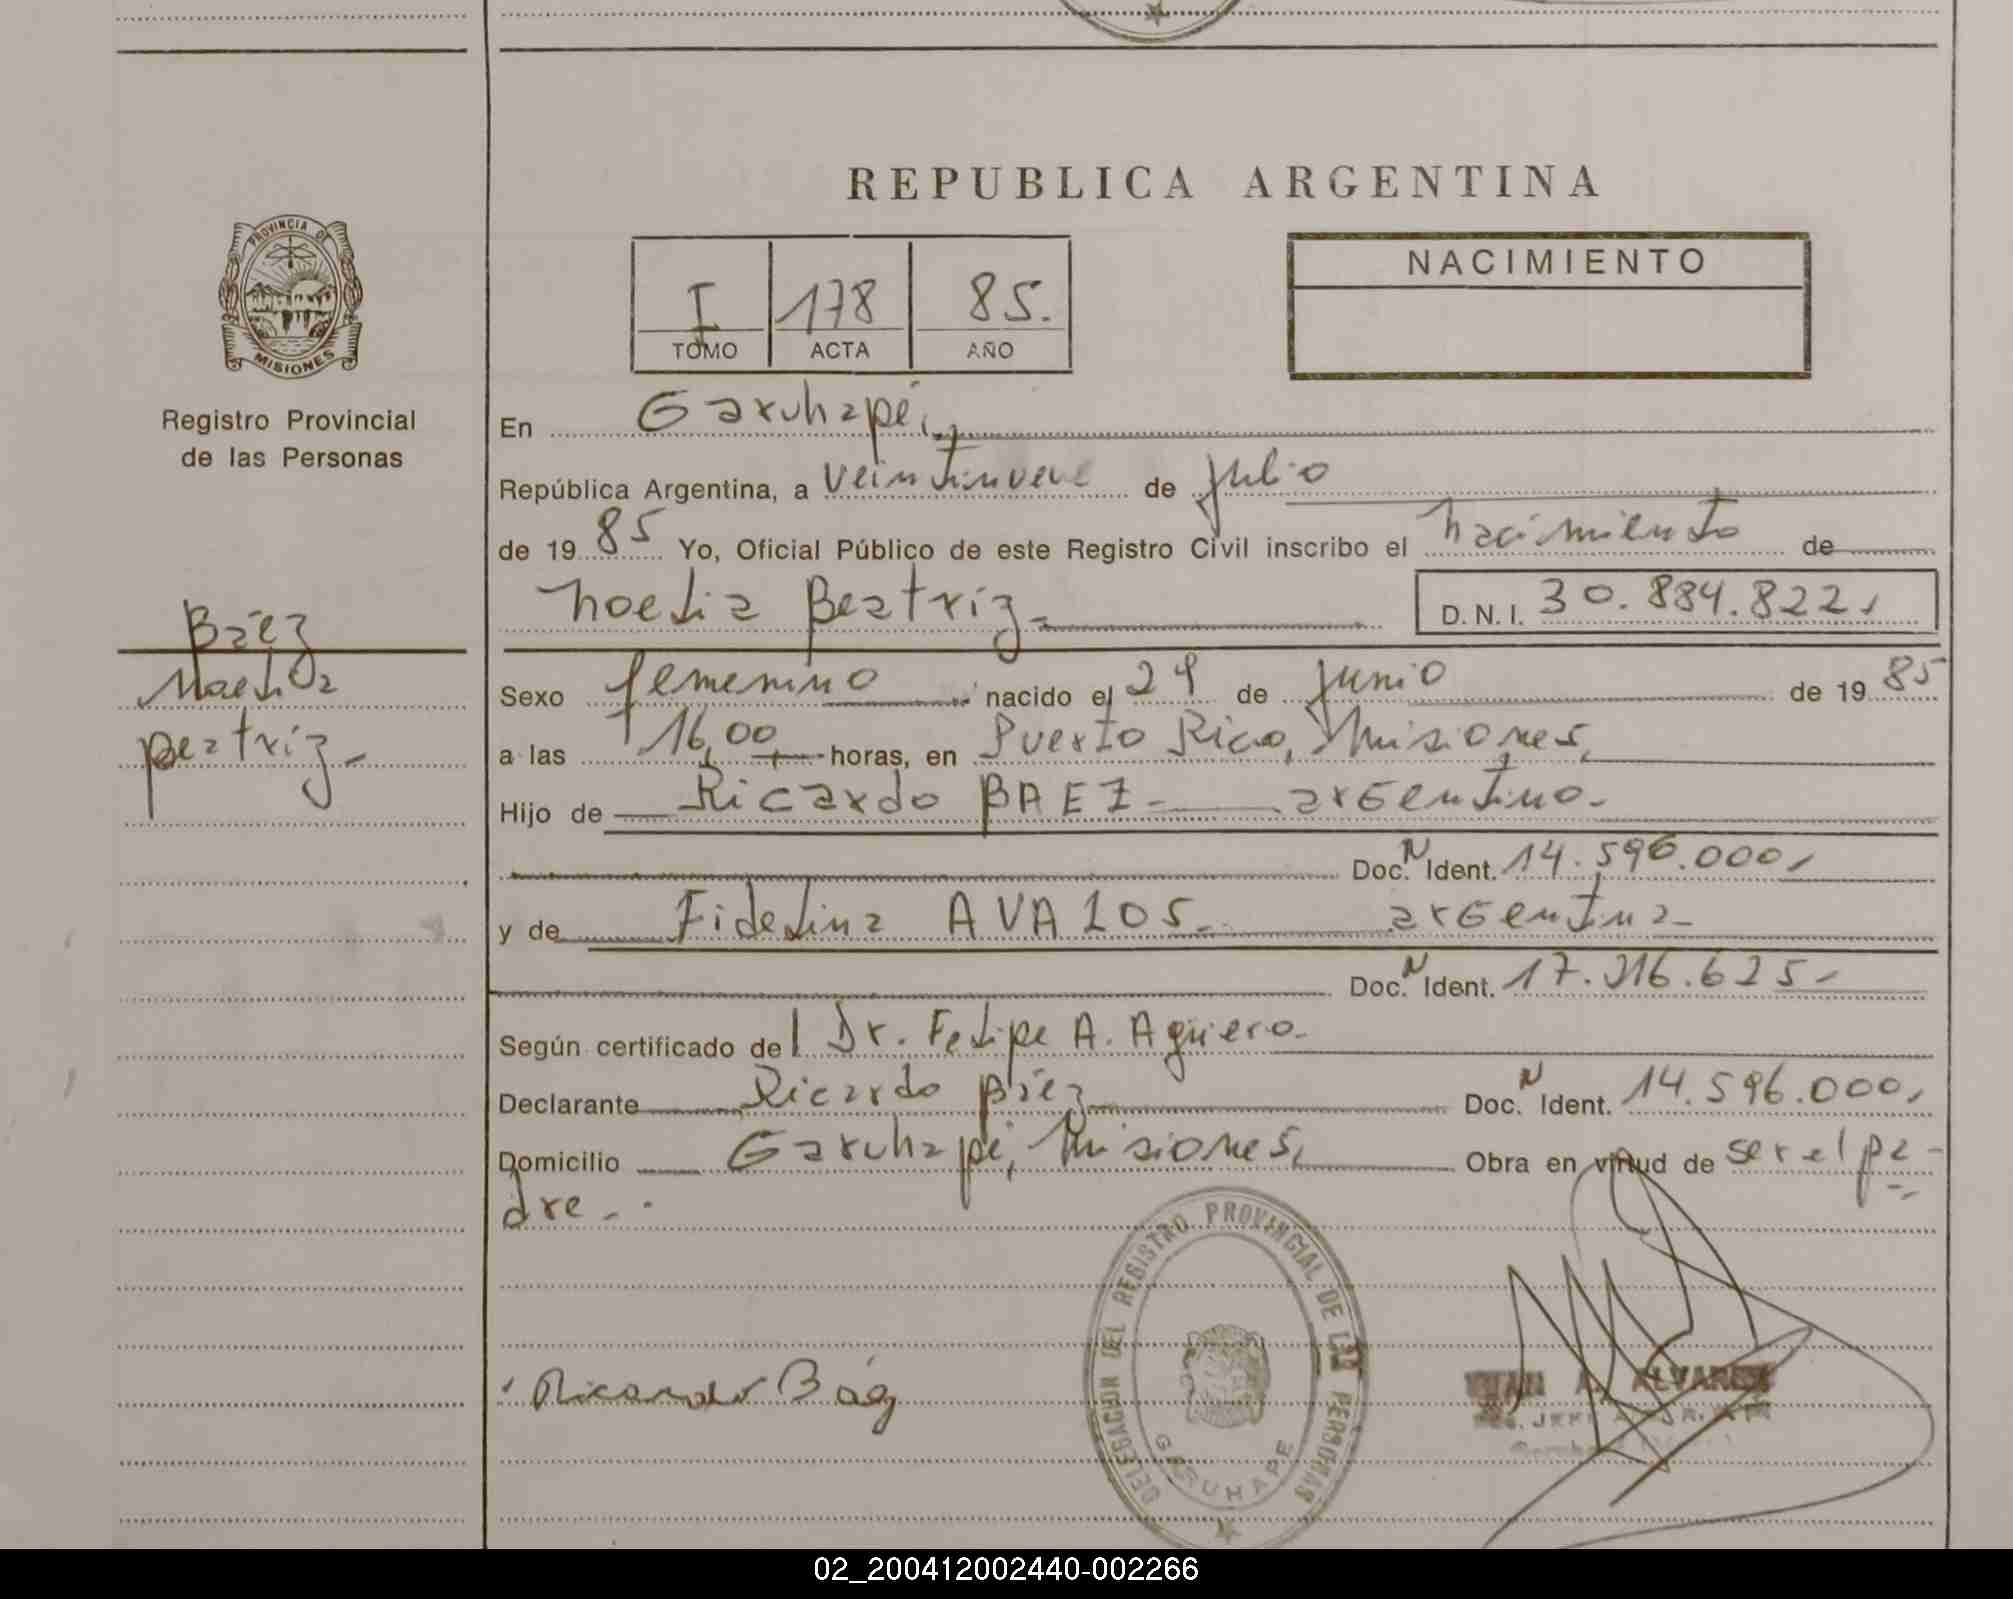 REPUBLICA ARGENTINA
PROVINCIA DE
MISIONES
Registro Provincial
de las Personas
NACIMIENTO
I 178 85.
TOMO ACTA AÑO
En Garuhapé,
República Argentina, a veintinueve de julio
de 1985 Yo, Oficial Público de este Registro Civil inscribo el nacimiento de
Noelia Beatriz.
D.N.I. 30.884.822,
Báez
Noelia
Beatriz.-
Sexo femenino nacido el 29 de junio de 1985
a las 16,00 horas, en Puerto Rico, Misiones,
Hijo de Ricardo BAEZ- argentino.
Doc. N Ident. 14.596.000,
y de Fidelina AVALOS. argentina
Doc. N Ident. 17.216.625-
Según certificado del Dr. Felipe A. Agüero.
Declarante Ricardo Báez Doc. N Ident. 14.596.000,
Domicilio Garuhapé, Misiones, Obra en virtud de ser el pa-
dre.-
Ricardo Báez
DELEGACION DEL REGISTRO PROVINCIAL DE LAS PERSONAS
GARUHAPE
JUAN A. ALVAREZ
02_200412002440-002266